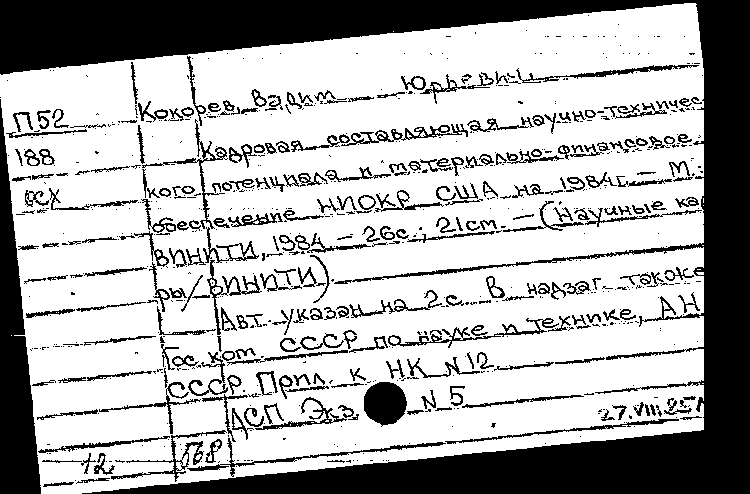 П52 Кокорев, Вадим Юрьевич
188 Кадровая составляющая научно-техничес
ОСХ кого потенциала и материально-финансовое
обеспечение НИОКР США на 1984г. – М.:
ВИНИТИ, 1984. – 26с.; 21см. – (Научные кад
ры/ВИНИТИ)
Авт. указан на 2с. В надзаг. также:
Гос. ком. СССР по науке и технике, АН
СССР. Прил. к НК N12
ДСП Экз. N 5
12. П68 27.VIII.85